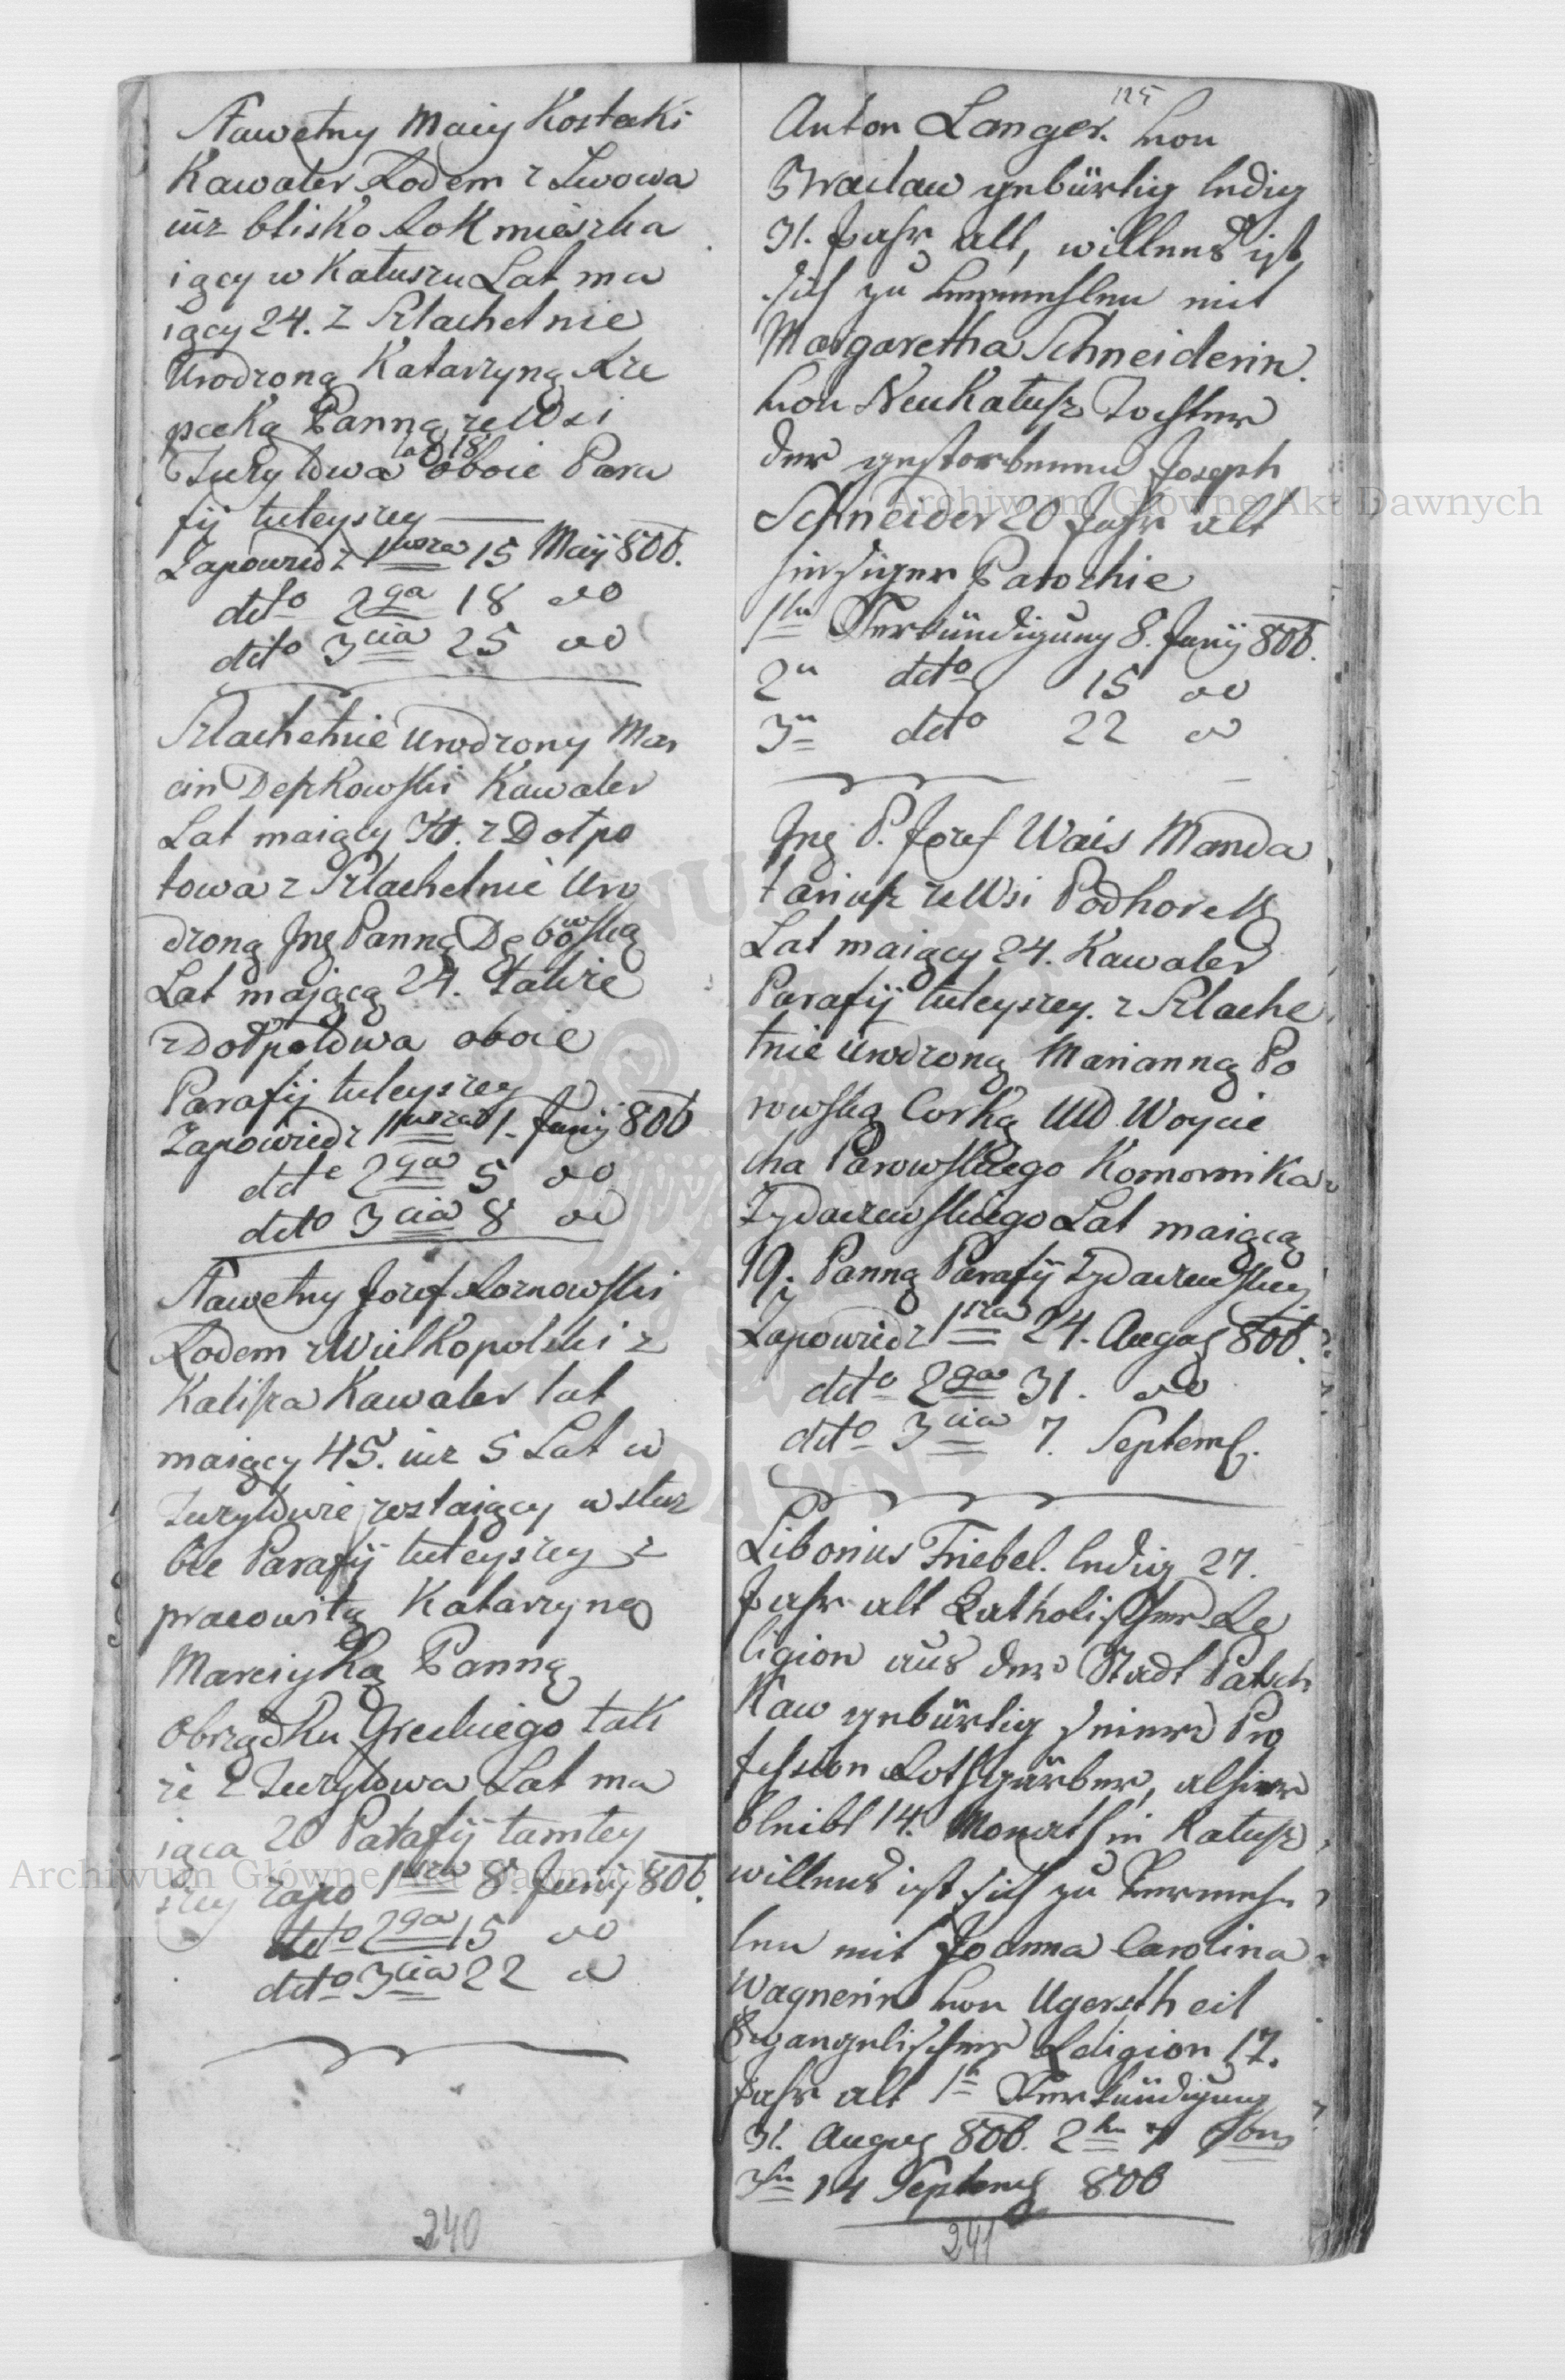 Sławetny Maciy Kostecki
Kawaler Rodem z Lwowa
iuz blisko Rok mieszka
iący w Kałuszu Lat ma
iący 24. z Szlachetnie
Urodzoną Katarzyną Rze
pecką Panną ze Wsi
Turzyłowa lat 18 oboie Para
fij tuteyszey
Zapowiedz 1wsza 15 Maij 806.
detto 2ga 18 do
detto 3cia 25 do
Szlachetnie Urodzony Mar
cin Deszkowski Kawaler
Lat maiący 30. z Dołpo
towa z Szlachetnie Uro
dzoną Jmę Panną Dębowską
Lat mającą 24. Takze
z Dołpotowa oboie
Parafij tuteyszey
Zapowiedz 1wsza 1. Junij 806
dette 2ga 5 do
detto 3cia 8 do
Sławetny Jozef Roznowski
Rodem z Wielkopolski z
Kalisza Kawaler lat
maiący 45. iuz 5 Lat w
Turzyłowie zostaiący w służ
bie Parafij tuteyszey z
pracowitą Katarzyną
Marciyką Panną
Obrządku Greckiego tak
ze z Turzyłowa Lat ma
iąca 20 Parafij tamtey
szey zapo 1wsza 8. Junij 806.
detto 2ga 15 do
detto 3cia 22 do
240
125
Anton Langer. von
Wraclaw gebürtig ledig
31. Jahr alt, willens ist
sich zu vermehlen mit
Margaretha Schneiderin.
von NeuKałusz Tochter
der gestorbenen Joseph
Schneider 20 Jahr alt
hiesiger Parochie
1te Verkündigung 8. Junij 806.
2te detto 15 do
3te detto 22 do
Jmę P. Jozef Wais Manda
tariusz ze Wsi Podhorek
Lat maiący 24. Kawaler
Parafij tuteyszey. z Szlache
tnie Urodzoną Marianną Po
rowską Corką UUD Woycie
cha Parowskiego Komornika
Zydaczewskiego Lat maiącą
19. Panną Parafij Zydaczewskiey
Zapowiedz 1sza 24. Augus 806.
detto 2ga 31. do
detto 3cia 7. Septemb.
Libonius Friebel. ledig 27.
Jahr alt Katholischer Re
ligion aus der Stadt Patsch
Kaw gebürtig seiner Pro
fession Rothgärber, alhier
bleibt 14. Monath in Kałusz
willens ist sich zu Vermeh
len mit Joanna Carolina
Wagnerin von Ugerstheil
Evangelischer Religion 17.
Jahr alt 1te Verkündigung
31. Augus 806. 2te 7 7bris
3te 14 Septemb 806
241
Archiwum Główne Akt Dawnych
Archiwum Główne Akt Dawnych